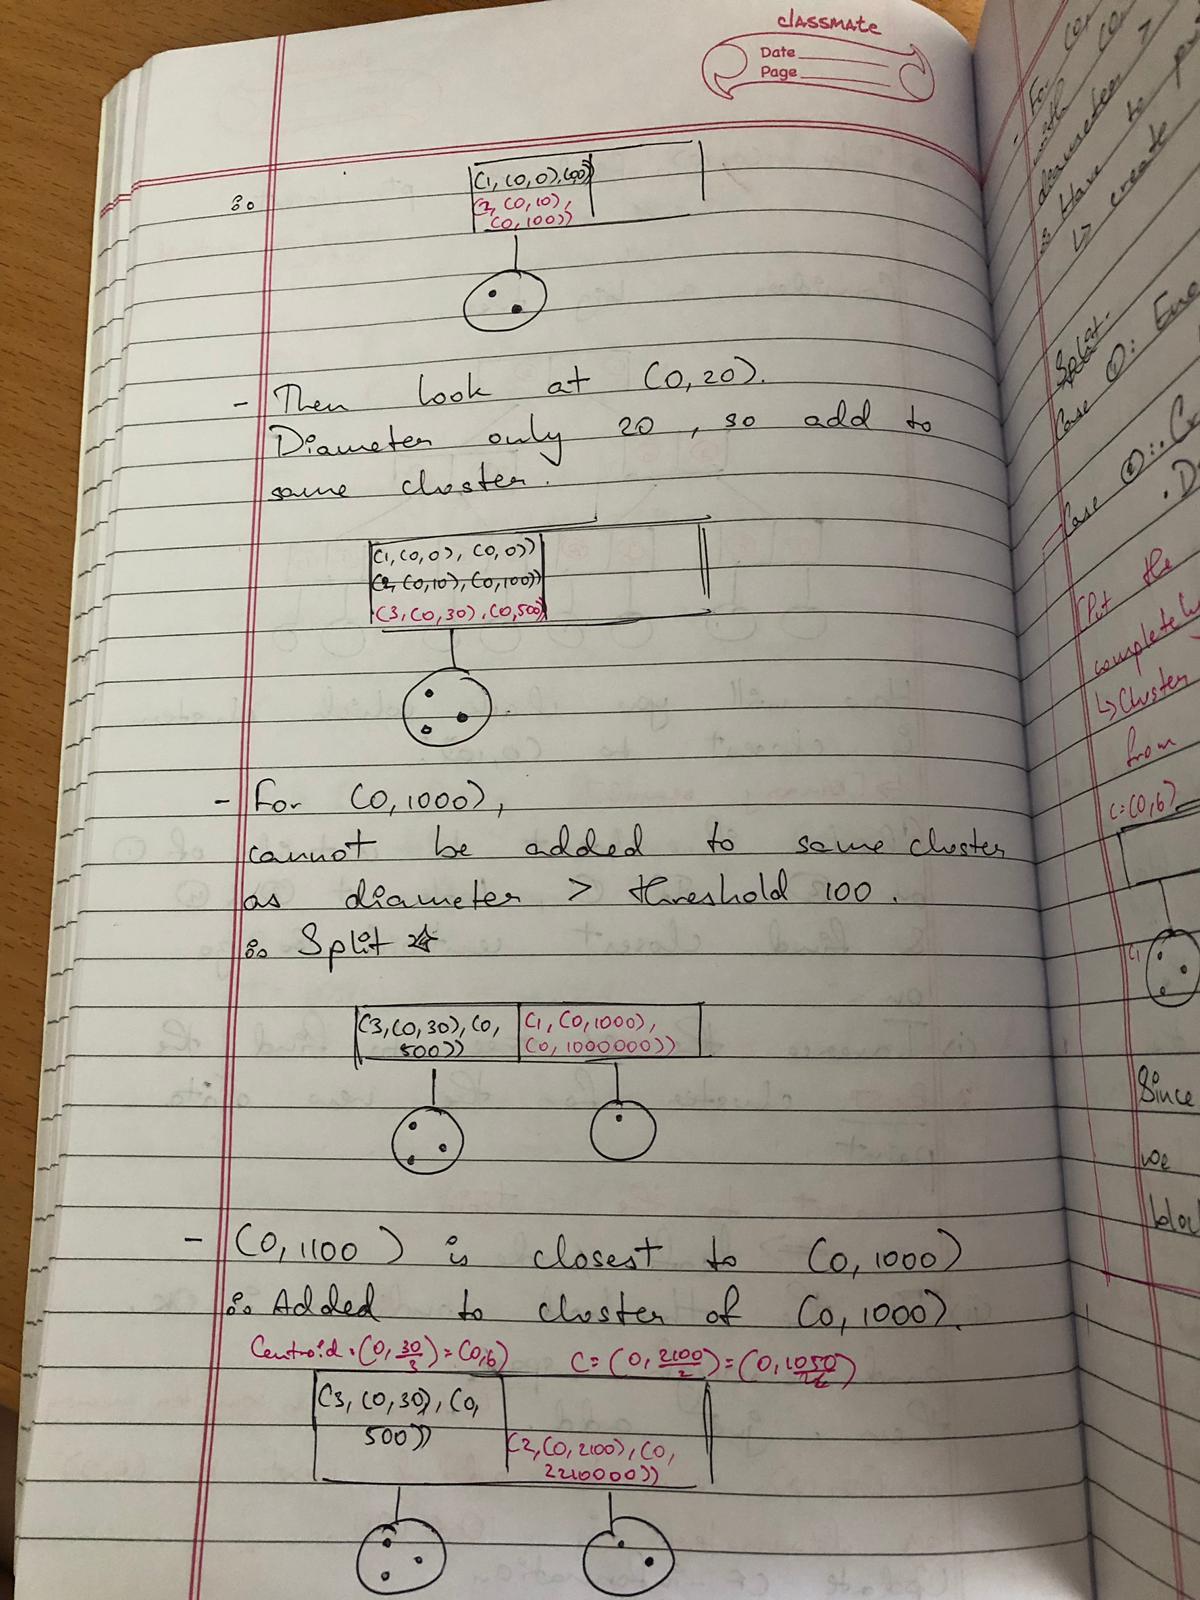 classmate
Date
Page
∴
(1, (0,0), (0,0))
(2, (0,10),
(0,100))
- Then look at (0,20).
Diameter only 20, so add to
same cluster.
(1, (0,0), (0,0))
(2, (0,10), (0,100))
(3, (0,30), (0,500)
- For (0,1000),
cannot be added to same cluster
as diameter > threshold 100.
∴ Split ☆
(3, (0,30), (0,
500))
(1, (0,1000),
(0, 1000000))
- (0,1100) is closest to (0,1000)
∴ Added to cluster of (0,1000).
Centroid: (0, 30/3) = (0,6)
C = (0, 2100/2) = (0, 1050)
(3, (0,30), (0,
500))
(2, (0,2100), (0,
2210000))
- For
with
diameter >
∴ Have to
↳ create
Split-
Case ①:
Case ②:
(Put the
complete
↳ Cluster
from
C=(0,6)
C1
Since
we